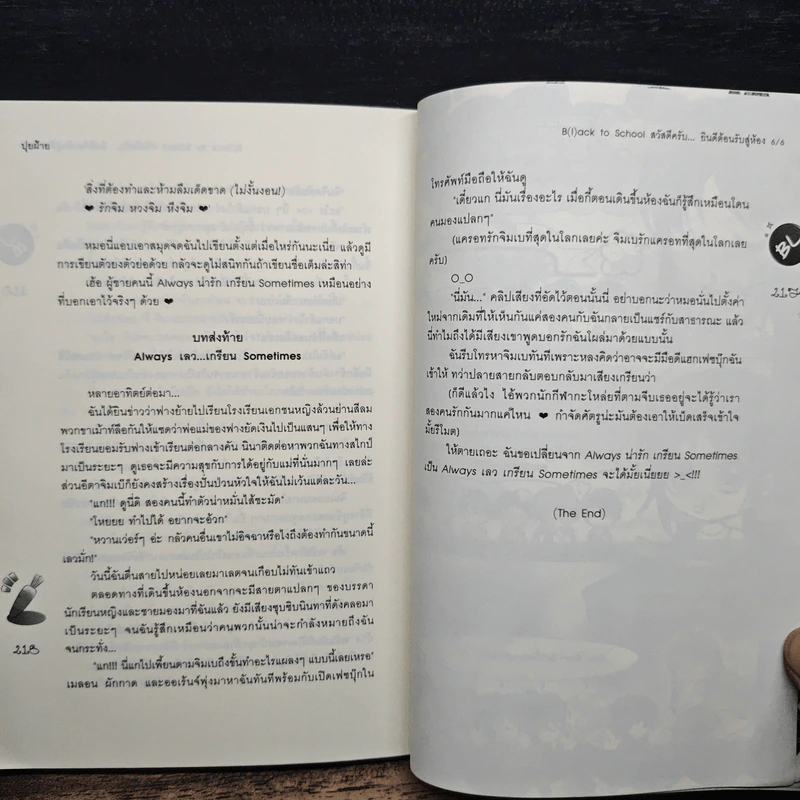 ปุยฝ้าย
'สิ่งที่ต้องทำและห้ามลืมเด็ดขาด (ไม่งั้นงอน!)
❤ รักจิม หวงจิม หึงจิม ❤'
หมอนี่แอบเอาสมุดจดฉันไปเขียนตั้งแต่เมื่อไหร่กันนะเนี่ย แล้วดูมี
การเขียนตัวยงตัวย่อด้วย กลัวจะดูไม่สนิทกันถ้าเขียนชื่อเต็มล่ะสิท่า
เฮ้อ ผู้ชายคนนี้ Always น่ารัก เกรียน Sometimes เหมือนอย่าง
ที่บอกเอาไว้จริงๆ ด้วย ❤
บทส่งท้าย
Always เลว...เกรียน Sometimes
หลายอาทิตย์ต่อมา...
ฉันได้ยินข่าวว่าฟางย้ายไปเรียนโรงเรียนเอกชนหญิงล้วนย่านสีลม
พวกขาเม้าท์ลือกันให้แซดว่าพ่อแม่ของฟางยัดเงินไปเป็นแสนๆ เพื่อให้ทาง
โรงเรียนยอมรับฟางเข้าเรียนต่อกลางคัน นินาติดต่อหาพวกฉันทางสไกป์
มาเป็นระยะๆ ดูเธอจะมีความสุขกับการได้อยู่กับแม่ที่นั่นมากๆ เลยล่ะ
ส่วนอีตาจิมเบก็ยังคงสร้างเรื่องปั่นป่วนหัวใจให้ฉันไม่เว้นแต่ละวัน...
"แก!!! ดูนี่ดิ สองคนนี้ทำตัวน่าหมั่นไส้ชะมัด"
"โหยยย ทำไปได้ อยากจะอ้วก"
"หวานเว่อร์ๆ อ่ะ กลัวคนอื่นเขาไม่อิจฉาหรือไงถึงต้องทำกันขนาดนี้
เลวมั่ก!"
วันนี้ฉันตื่นสายไปหน่อยเลยมาเลตจนเกือบไม่ทันเข้าแถว
ตลอดทางที่เดินขึ้นห้องนอกจากจะมีสายตาแปลกๆ ของบรรดา
นักเรียนหญิงและชายมองมาที่ฉันแล้ว ยังมีเสียงซุบซิบนินทาที่ดังคลอมา
เป็นระยะๆ จนฉันรู้สึกเหมือนว่าคนพวกนั้นน่าจะกำลังหมายถึงฉัน
จนกระทั่ง...
"แก!!! นี่แกไปเพี้ยนตามจิมเบถึงขั้นทำอะไรแผลงๆ แบบนี้เลยเหรอ"
เมลอน ผักกาด และออเร้นจ์พุ่งมาหาฉันทันทีพร้อมกับเปิดเฟซบุ๊กใน
218
B(l)ack to School สวัสดีครับ... ยินดีต้อนรับสู่ห้อง 6/6
โทรศัพท์มือถือให้ฉันดู
"เดี๋ยวแก นี่มันเรื่องอะไร เมื่อกี้ตอนเดินขึ้นห้องฉันก็รู้สึกเหมือนโดน
คนมองแปลกๆ"
(แครอทรักจิมเบที่สุดในโลกเลยค่ะ จิมเบรักแครอทที่สุดในโลกเลย
ครับ)
O_O
"นี่มัน..." คลิปเสียงที่อัดไว้ตอนนั้นนี่ อย่าบอกนะว่าหมอนั่นไปตั้งค่า
ใหม่จากเดิมที่ให้เห็นกันแค่สองคนกับฉันกลายเป็นแชร์กับสาธารณะ แล้ว
นี่ทำไมถึงได้มีเสียงเขาพูดบอกรักฉันโผล่มาด้วยแบบนั้น
ฉันรีบโทรหาจิมเบทันทีเพราะหลงคิดว่าอาจจะมีมือดีแฮกเฟซบุ๊กฉัน
เข้าให้ ทว่าปลายสายกลับตอบกลับมาเสียงเกรียนว่า
(ก็ดีแล้วไง ไอ้พวกนักกีฬากะโหล่ยที่ตามจีบเธออยู่จะได้รู้ว่าเรา
สองคนรักกันมากแค่ไหน ❤ กำจัดศัตรูน่ะมันต้องเอาให้เบ็ดเสร็จเข้าใจ
มั้ยรีโมต)
ให้ตายเถอะ ฉันขอเปลี่ยนจาก Always น่ารัก เกรียน Sometimes
เป็น Always เลว เกรียน Sometimes จะได้มั้ยเนี่ยยย >_<!!!
(The End)
BL
219